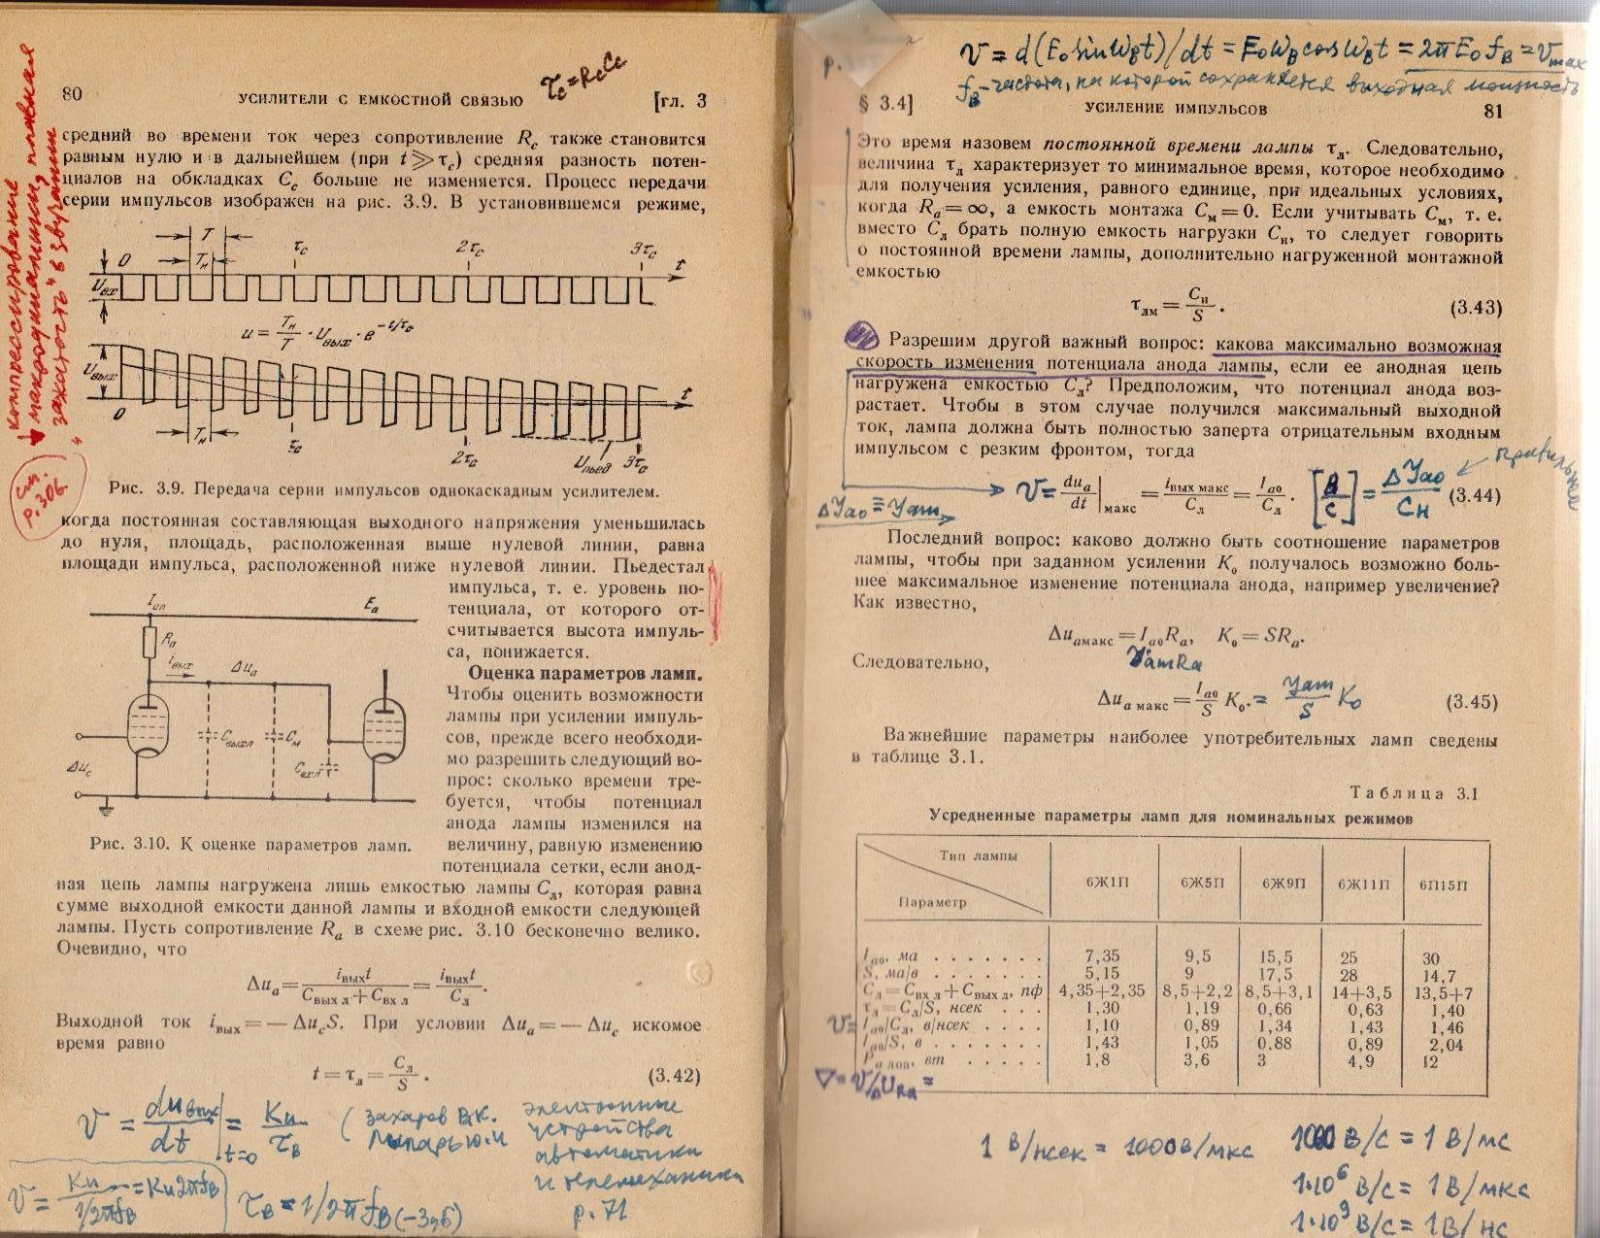 τс = RсCс
80
УСИЛИТЕЛИ С ЕМКОСТНОЙ СВЯЗЬЮ
[гл. 3
средний во времени ток через сопротивление Rс также становится
равным нулю и в дальнейшем (при t ≫ τс) средняя разность потен-
циалов на обкладках Cс больше не изменяется. Процесс передачи
серии импульсов изображен на рис. 3.9. В установившемся режиме,
T
0 Tн τс 2τс 3τс t
Uвх
u = Tн/T · Uвых · e^−t/τс
Uвых
t
0 Tн τс 2τс Uпьед 3τс
см.
р.306.
Рис. 3.9. Передача серии импульсов однокаскадным усилителем.
когда постоянная составляющая выходного напряжения уменьшилась
до нуля, площадь, расположенная выше нулевой линии, равна
площади импульса, расположенной ниже нулевой линии. Пьедестал
импульса, т. е. уровень по-
тенциала, от которого от-
считывается высота импуль-
са, понижается.
Оценка параметров ламп.
Чтобы оценить возможности
лампы при усилении импуль-
сов, прежде всего необходи-
мо разрешить следующий во-
прос: сколько времени тре-
буется, чтобы потенциал
анода лампы изменился на
величину, равную изменению
потенциала сетки, если анод-
Iао Eа
Rа
iвых Δuа
Cвых л Cм
Cвх л
Δuс
Рис. 3.10. К оценке параметров ламп.
ная цепь лампы нагружена лишь емкостью лампы Cл, которая равна
сумме выходной емкости данной лампы и входной емкости следующей
лампы. Пусть сопротивление Rа в схеме рис. 3.10 бесконечно велико.
Очевидно, что
Δuа = iвыхt / (Cвых л + Cвх л) = iвыхt / Cл.
Выходной ток iвых = − ΔuсS. При условии Δuа = − Δuс искомое
время равно
t = τл = Cл/S. (3.42)
V = duвых/dt |t=0 = Kи/τв (Захаров В.К.
Лыпарь Ю.И
электронные
устройства
автоматики
и телемеханики
р. 71
V = Kи/(1/2πfв) = Kи2πfв
τв = 1/2πfв(−3дб)
V = d(E₀sinωвt)/dt = E₀ωвcosωвt = 2πE₀fв = Vmax
fв - частота, на которой сохраняется выходная мощность
§ 3.4]
УСИЛЕНИЕ ИМПУЛЬСОВ
81
Это время назовем постоянной времени лампы τл. Следовательно,
величина τл характеризует то минимальное время, которое необходимо
для получения усиления, равного единице, при идеальных условиях,
когда Rа = ∞, а емкость монтажа Cм = 0. Если учитывать Cм, т. е.
вместо Cл брать полную емкость нагрузки Cн, то следует говорить
о постоянной времени лампы, дополнительно нагруженной монтажной
емкостью
τлм = Cн/S. (3.43)
Разрешим другой важный вопрос: какова максимально возможная
скорость изменения потенциала анода лампы, если ее анодная цепь
нагружена емкостью Cл? Предположим, что потенциал анода воз-
растает. Чтобы в этом случае получился максимальный выходной
ток, лампа должна быть полностью заперта отрицательным входным
импульсом с резким фронтом, тогда
V = duа/dt |макс = iвых макс/Cл = Iа0/Cл. [В/с] = ΔJао/Cн (3.44)
ΔJао ≡ Jam
Последний вопрос: каково должно быть соотношение параметров
лампы, чтобы при заданном усилении K₀ получалось возможно боль-
шее максимальное изменение потенциала анода, например увеличение?
Как известно,
Δuамакс = Iа0Rа, K₀ = SRа.
JamRa
Следовательно,
Δuа макс = Iа0/S K₀. = Jam/S K₀ (3.45)
Важнейшие параметры наиболее употребительных ламп сведены
в таблице 3.1.
Таблица 3.1
Усредненные параметры ламп для номинальных режимов
Тип лампы
Параметр
6Ж1П 6Ж5П 6Ж9П 6Ж11П 6П15П
Iа0, ма . . . . . . . 7,35 9,5 15,5 25 30
S, ма/в . . . . . . . 5,15 9 17,5 28 14,7
Cл = Cвх л + Cвых л, пф 4,35+2,35 8,5+2,2 8,5+3,1 14+3,5 13,5+7
τл = Cл/S, нсек . . . 1,30 1,19 0,66 0,63 1,40
V= Iа0/Cл, в/нсек . . . . 1,10 0,89 1,34 1,43 1,46
Iа0/S, в . . . . . . . 1,43 1,05 0,88 0,89 2,04
Pа доп, вт . . . . . 1,8 3,6 3 4,9 12
∇=V/ΔURa =
1 В/нсек = 1000В/мкс
1000 В/с = 1 В/мс
1·10⁶ В/с = 1В/мкс
1·10⁹ В/с = 1В/нс